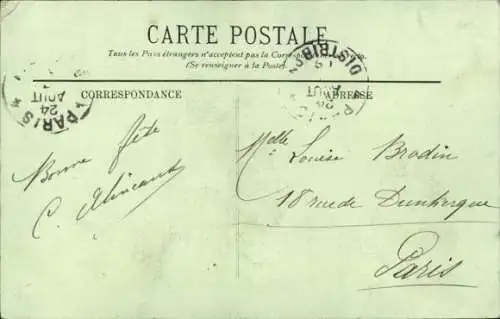 CARTE POSTALE
Tous les Pays étrangers n'acceptent pas la Corresp
(Se renseigner à la Poste)
CORRESPONDANCE
ADRESSE
PARIS
24
AOUT
DISTRIB
24
Bonne fête
C.
Melle Louise Brodin
18 rue de Dunkerque
Paris